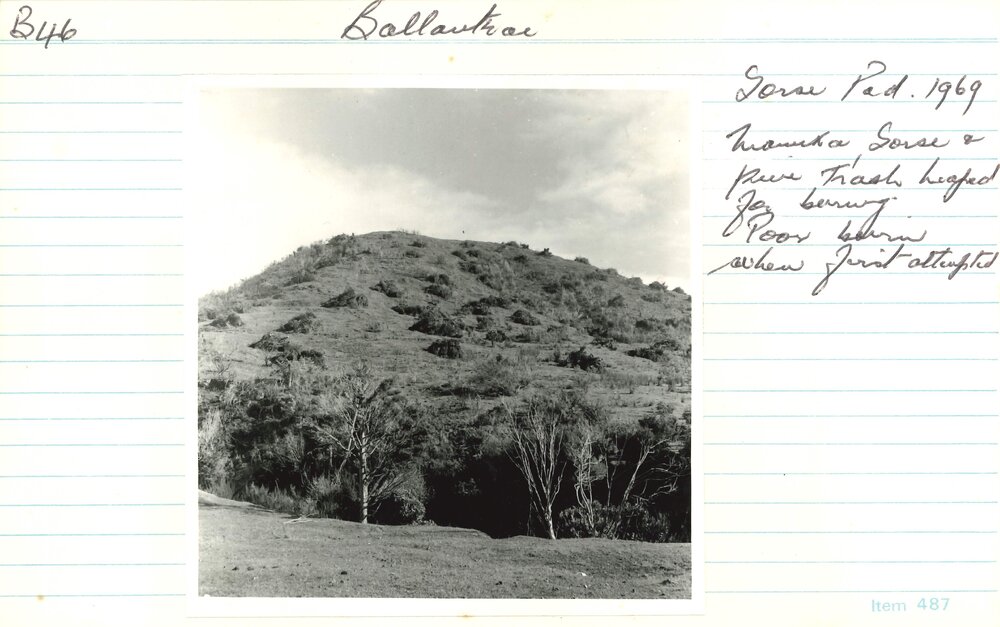 B46
Ballantrae
Gorse Pad. 1969
Manuka, Gorse &
pine Trash heaped
for burning.
Poor burn
when first attempted
Item 487